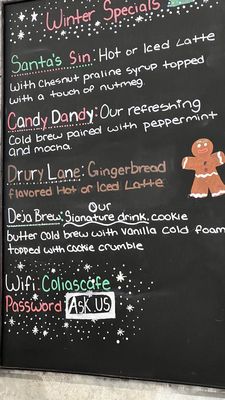 Winter Specials
Santa's Sin: Hot or Iced Latte
With Chesnut praline syrup topped
with a touch of nutmeg.
Candy Dandy: Our refreshing
Cold brew paired with peppermint
and mocha.
Drury Lane: Gingerbread
flavored Hot or Iced Latte
Our
Deja Brew: Signature drink, cookie
butter cold brew with Vanilla Cold foam
topped with Cookie crumble
Wifi: Coliascafe
Password: Ask us